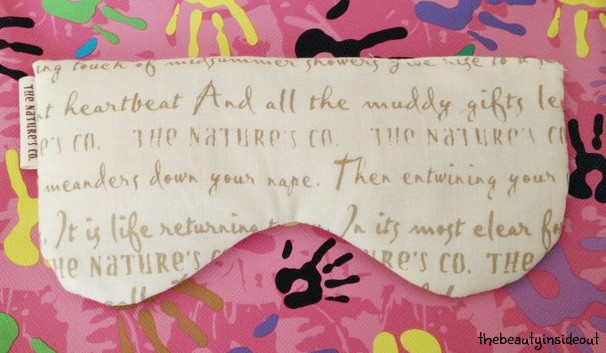 ing touch of midsummer showers give rise to a
heartbeat And all the muddy gifts
CO. THE NATURE'S CO. THE NATURE'S CO
meanders down your nape. Then entwining your
It is life returning In its most clear
THE NATURE'S CO. THE
THE NATURE'S CO.
thebeautyinsideout